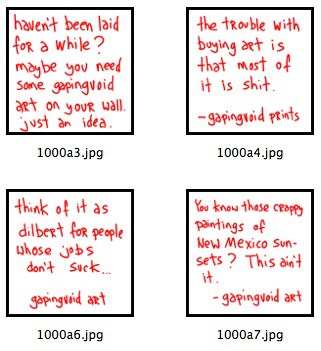 haven't been laid
for a while?
maybe you need
some gapingvoid
art on your wall.
just an idea.
1000a3.jpg
the trouble with
buying art is
that most of
it is shit.
-gapingvoid prints
1000a4.jpg
think of it as
dilbert for people
whose jobs
don't suck...
gapingvoid art
1000a6.jpg
You know those crappy
paintings of
New Mexico sun-
sets? This ain't
it.
- gapingvoid art
1000a7.jpg